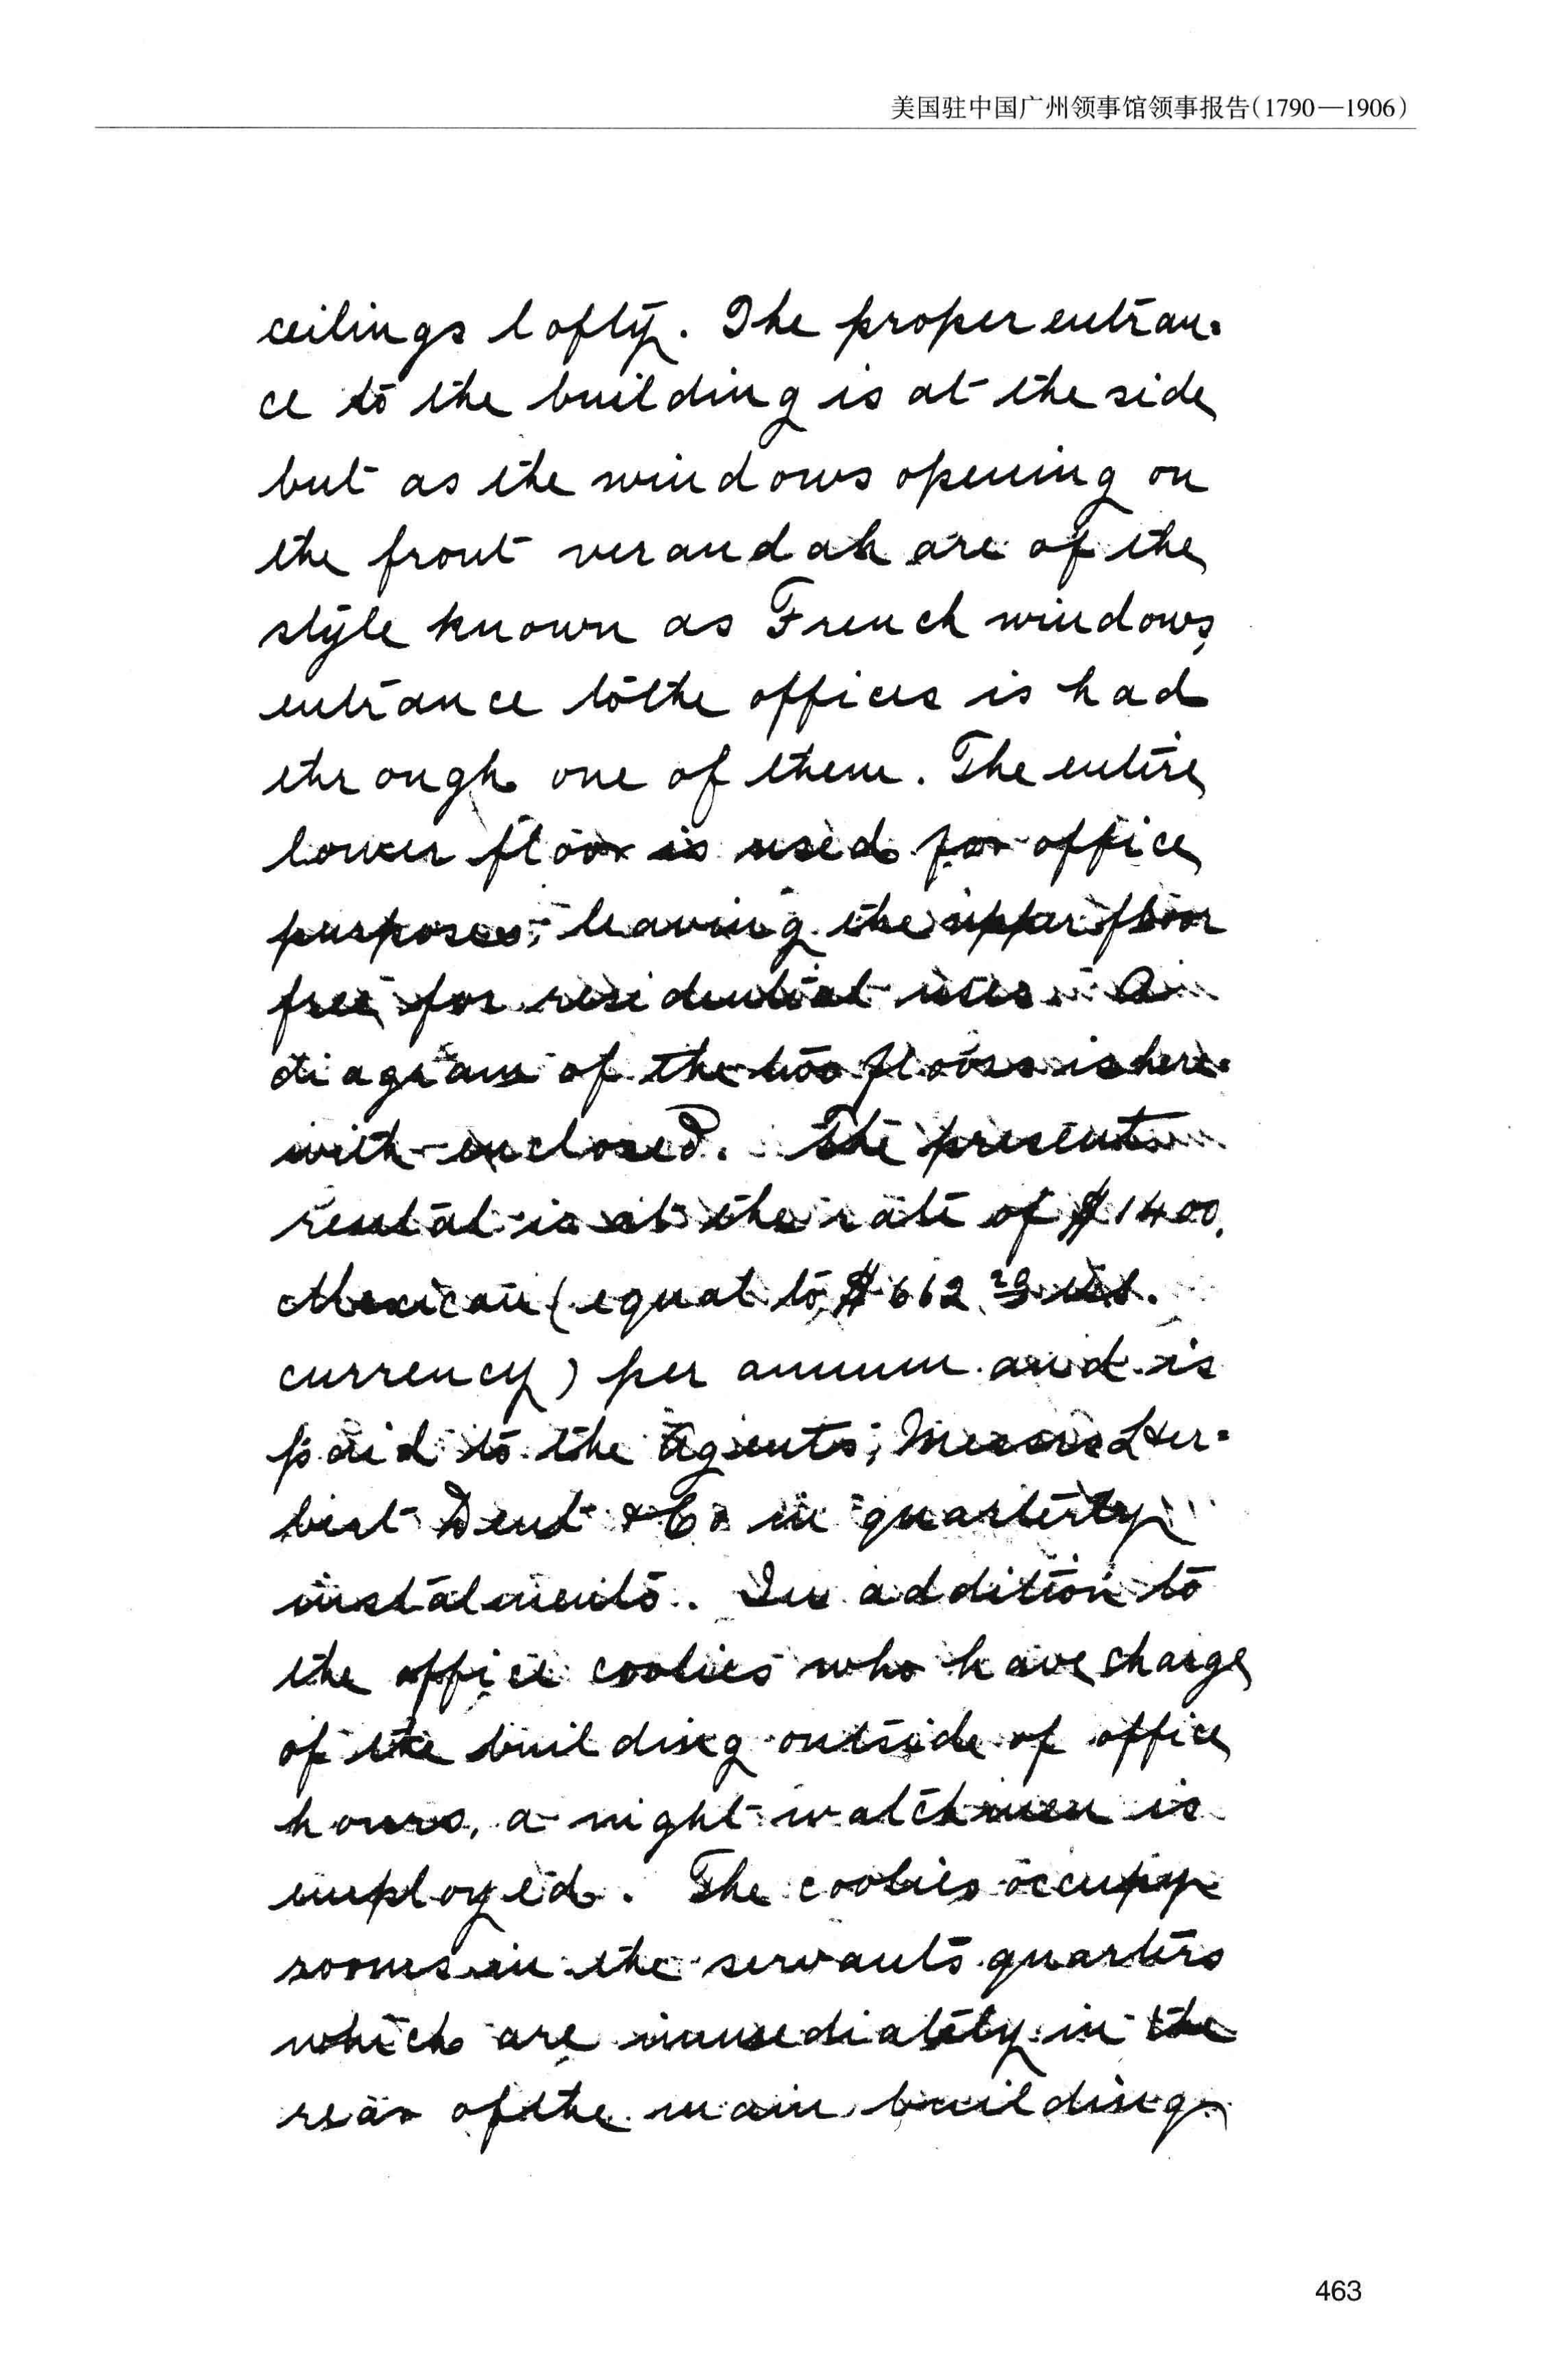 美国驻中国广州领事馆领事报告(1790—1906)
ceilings lofty. The proper entran-
ce to the building is at the side
but as the windows opening on
the front verandah are of the
style known as French windows,
entrance to the offices is had
through one of them. The entire
lower floor is used for office
purposes, leaving the upper floor
free for residential uses. A
diagram of the two floors is here-
with enclosed. The present
rental is at the rate of $1400.
Mexican (equal to $662
currency) per annum and is
paid to the agents, Messrs Her-
bert Dent & Co in quarterly
instalments. In addition to
the office coolies who have charge
of the building outside of office
hours, a night watchman is
employed. The coolies occupy
rooms in the servants quarters
which are immediately in the
rear of the main building.
463